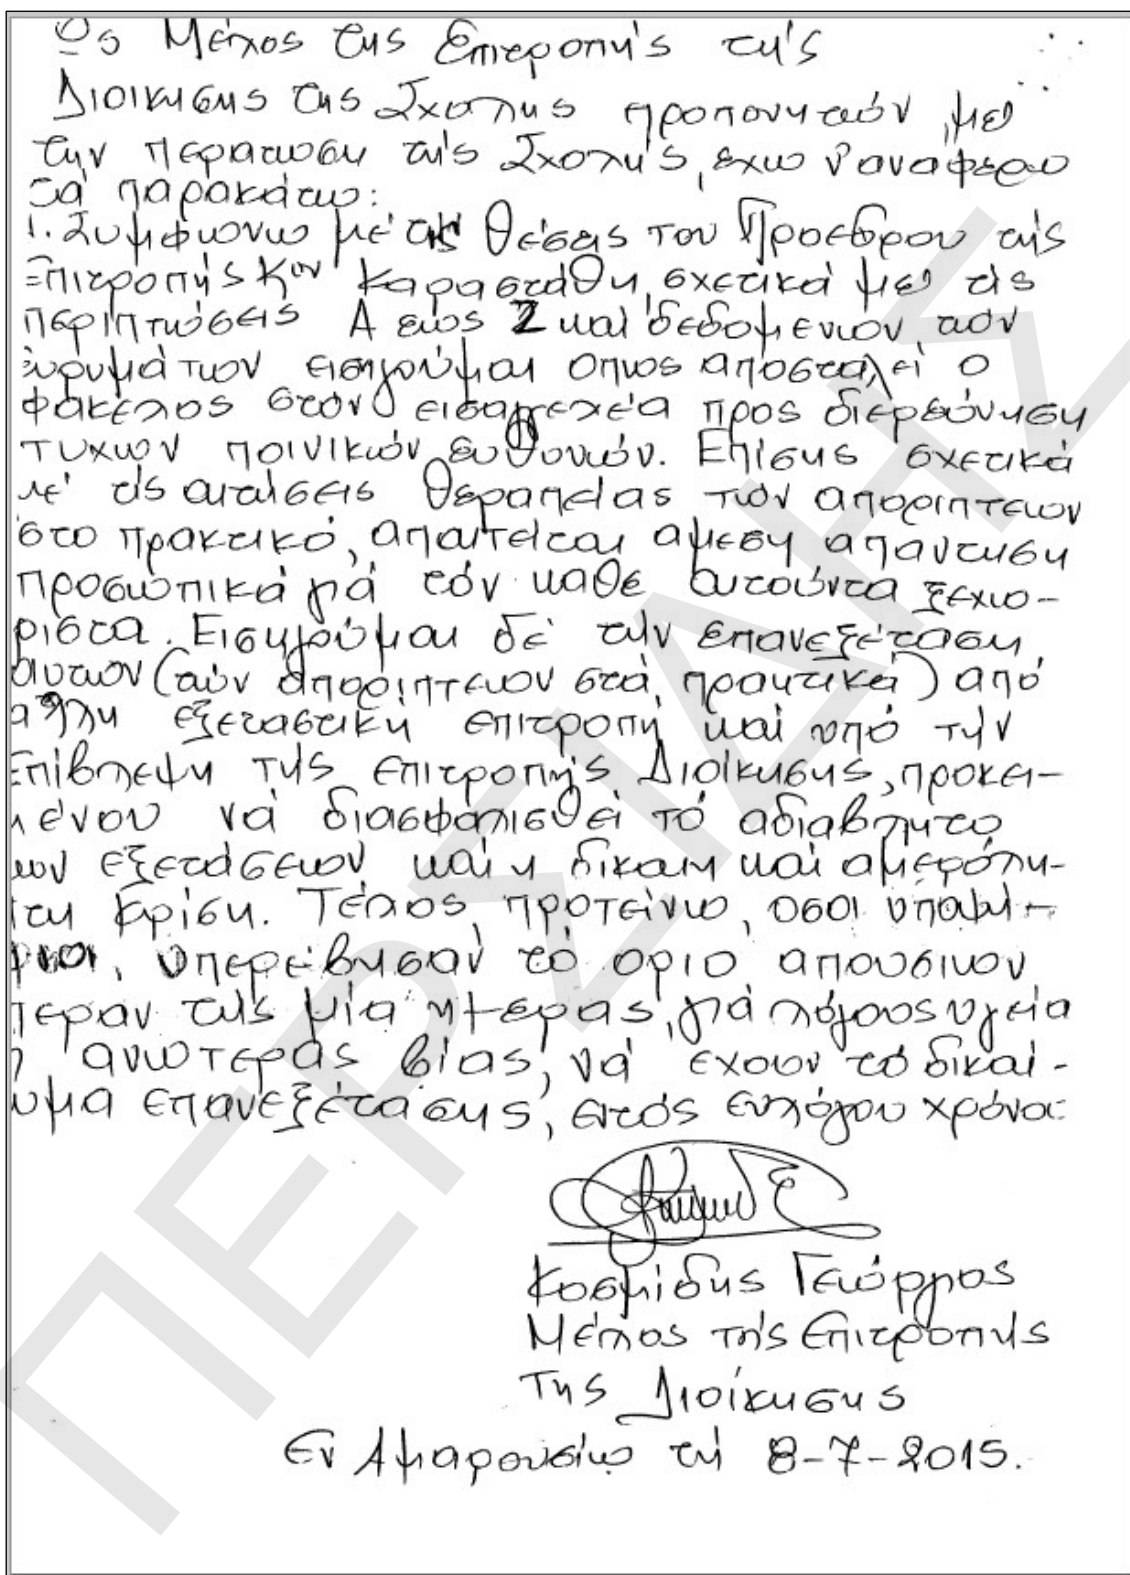 Ως Μέλος της Επιτροπής τής
Διοικησης της Σχολης προπονητών, με
την περατωση τής Σχολής, εχω ν'αναφερω
τά παρακάτω:
1. Συμφωνω μέ τις θέσεις του Προεδρου τής
Επιτροπής Κου Καραστάθη, σχετικά με τις
περιπτώσεις Α εώς Ζ και δεδομενων των
ευρυμάτων εισηγούμαι οπως αποσταλεί ο
φάκελος στον εισαγγελεία προς διερεύνηση
τυχων ποινικών ευθυνών. Επίσης σχετικά
με τίς αιτήσεις θεραπείας τών αποριπτεων
στο πρακτικό, απαιτείται αμεση απάντηση
προσωπικά γιά τόν καθε αιτούντα ξεχω-
ριστα. Εισηγούμαι δέ τήν επανεξέταση
αυτων (τών αποριπτεων στά πρακτικά) από
αλλη εξεταστική επιτροπή και υπό την
Επίβλεψη τής επιτροπής Διοίκησης, προκει-
μένου νά διασφαλισθεί τό αδιαβλητο
των εξετάσεων και η δικαιη και αμερόλη-
πτη κρίση. Τέλος, προτείνω, οσοι υποψή-
φιοι, υπερέβησαν τό οριο απουσιων
περαν τής μία ημερας, γιά λόγους υγεία
η ανωτερας βίας, νά εχουν τό δικαί-
ωμα επανεξέτασης, εντός ευλόγου χρόνου.
Κοσμίδης Γεώργιος
Μέλος τής Επιτροπής
Της Διοίκησης
Εν Αμαρουσίω τή 8-7-2015.
ΠΕΡΣΙΔΗΣ